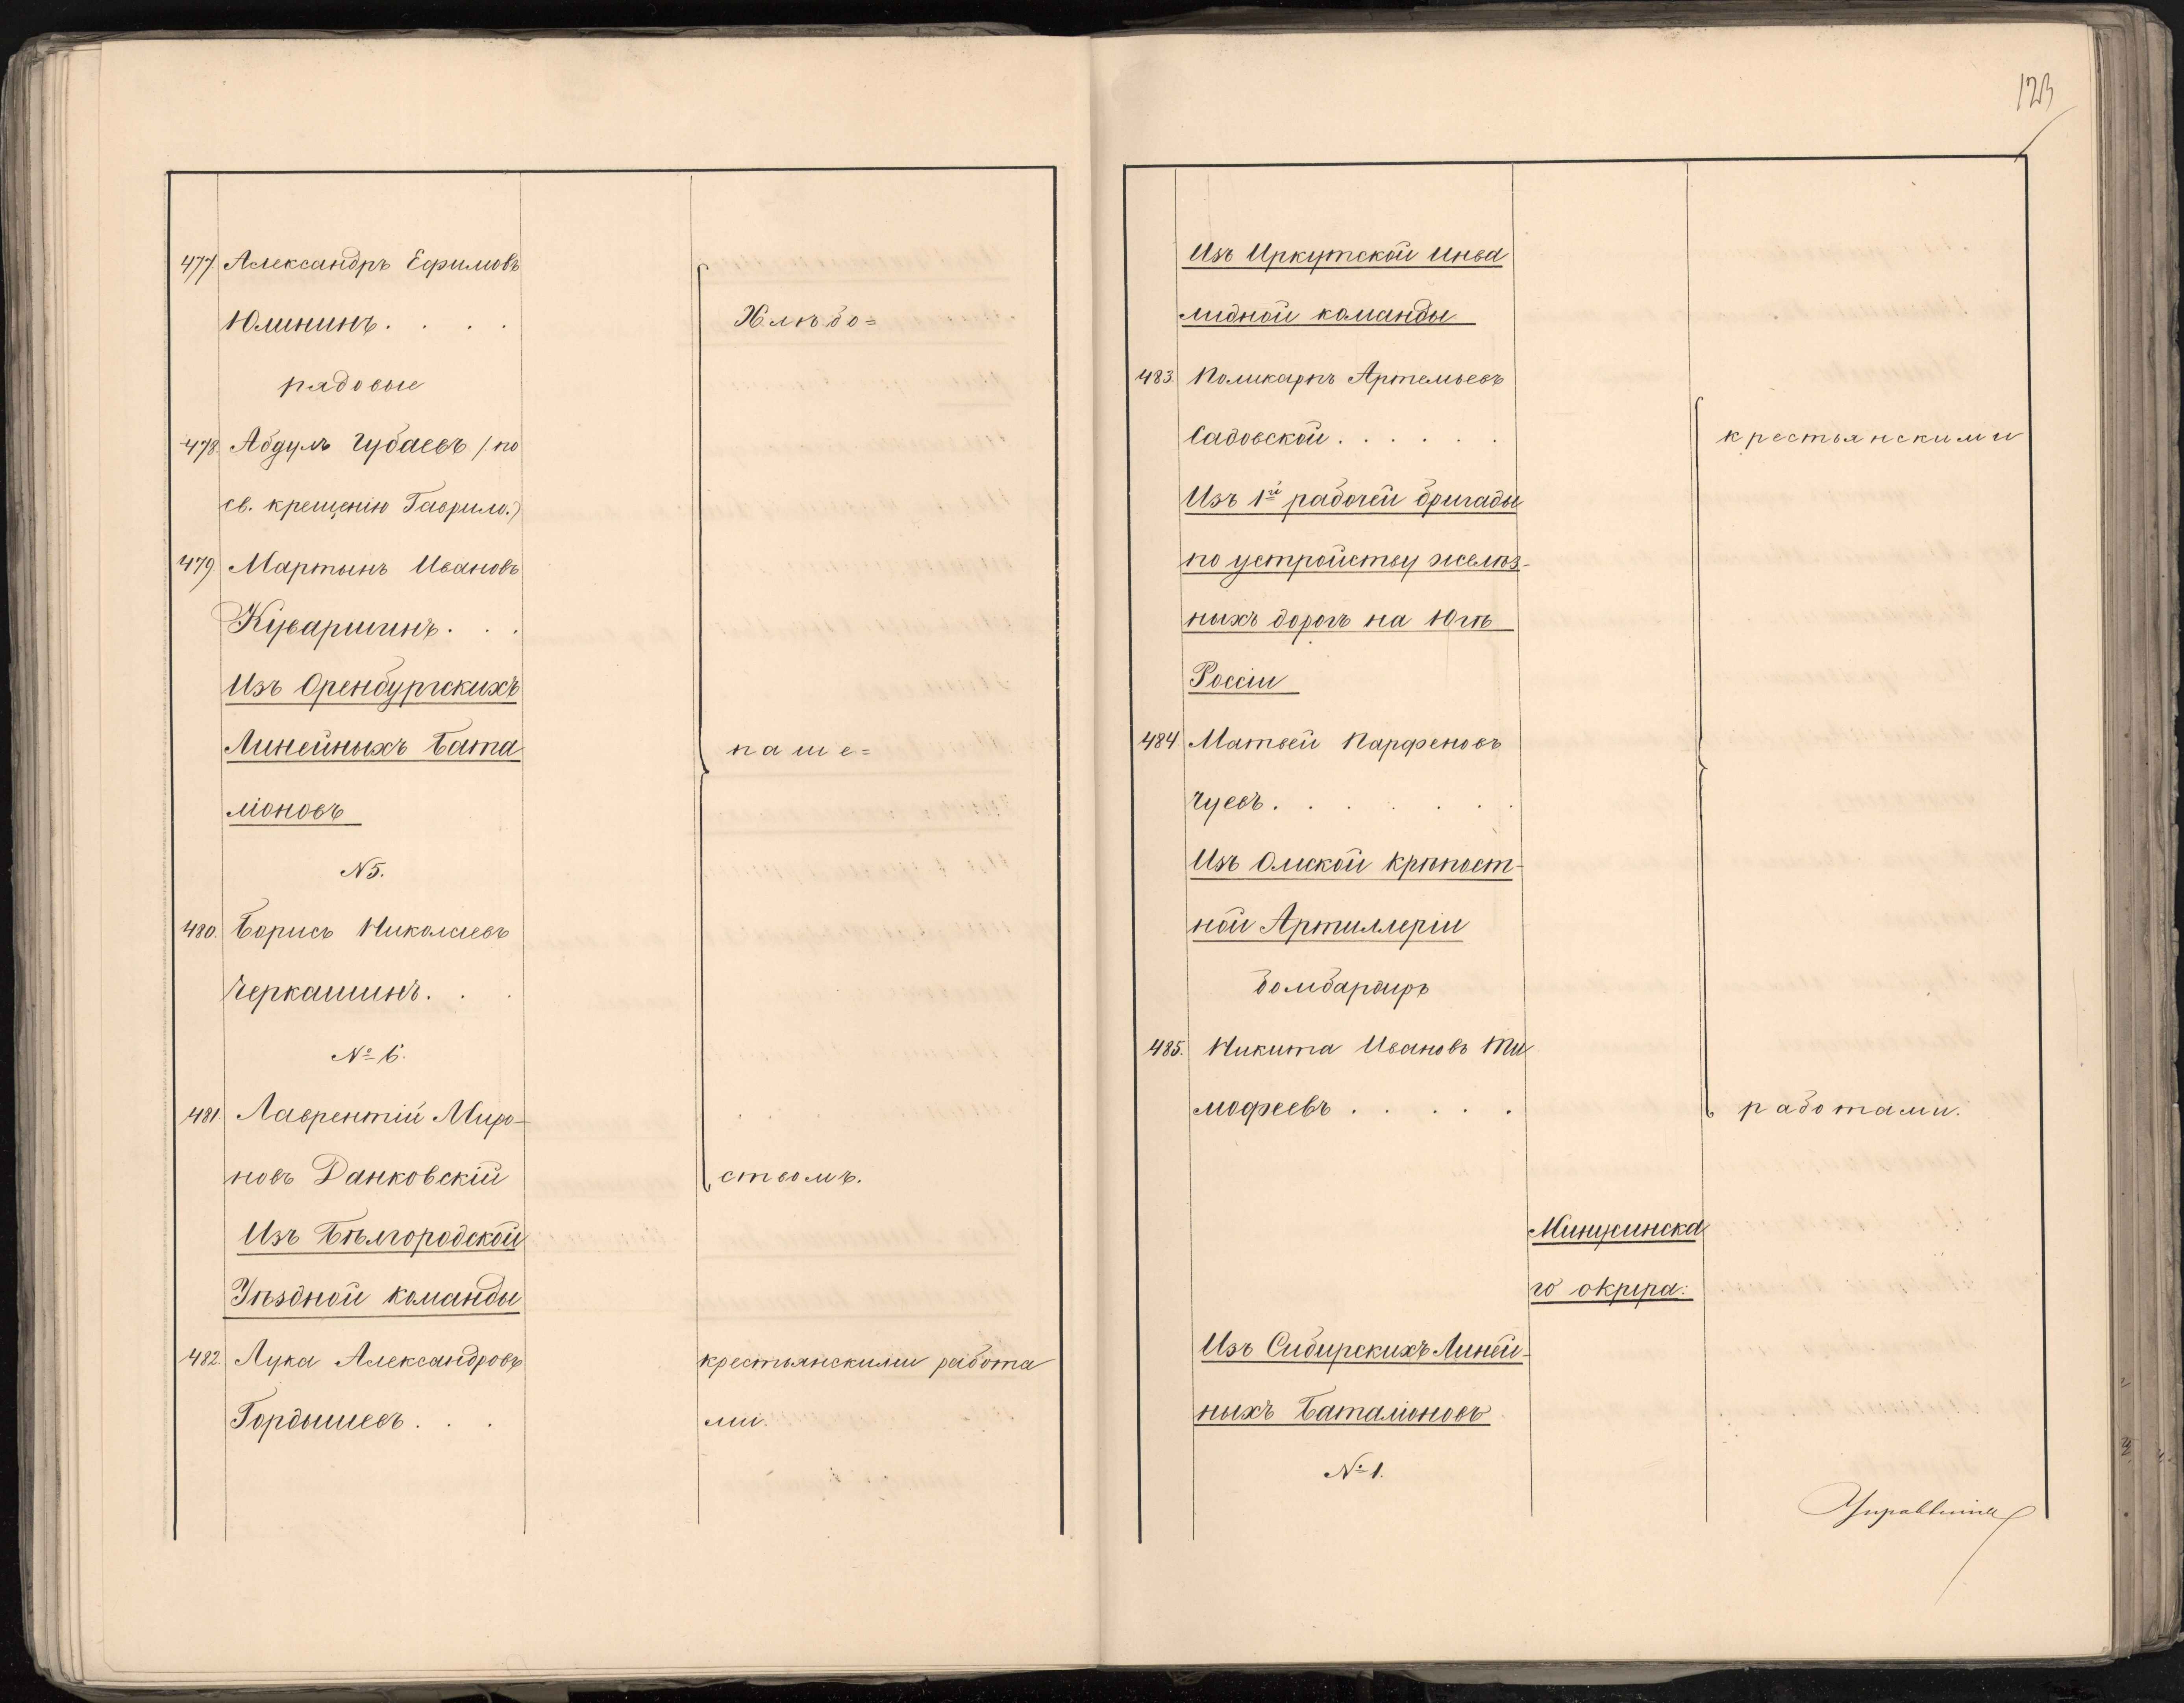 477. Александръ Ефимовъ
Юлининъ. . . .
Хлѣбо=
рядовые
478. Абдулъ Чубаевъ /: по
св. крещенію Гаврило:)
479. Мартынъ Ивановъ
Куваршинъ. . .
Изъ Оренбургскихъ
Линейныхъ Бата
паше=
ліоновъ
№ 5.
480. Борисъ Николаевъ
Черкашинъ. . .
№ 6.
481. Лаврентій Миро-
новъ Данковскій
ствомъ.
Изъ Бѣлгородской
Уѣздной команды
482. Лука Александровъ
крестьянскими работа
Гордышевъ. . .
ми.
123
Изъ Иркутской Инва
лидной команды
483. Поликарпъ Артемьевъ
Садовской. . . . . .
крестьянскими
Изъ 1й рабочей бригады
по устройству желѣз-
ныхъ дорогъ на Югѣ
Россіи
484. Матвей Парфеновъ
Чуевъ. . . . . .
Изъ Омской крѣпост-
ной Артиллеріи
бомбардиръ
485. Никита Ивановъ Ти
мофеевъ . . . . .
работами.
Минусинска
го округа:
Изъ Сибирскихъ Линей-
ныхъ Баталіоновъ
№ 1.